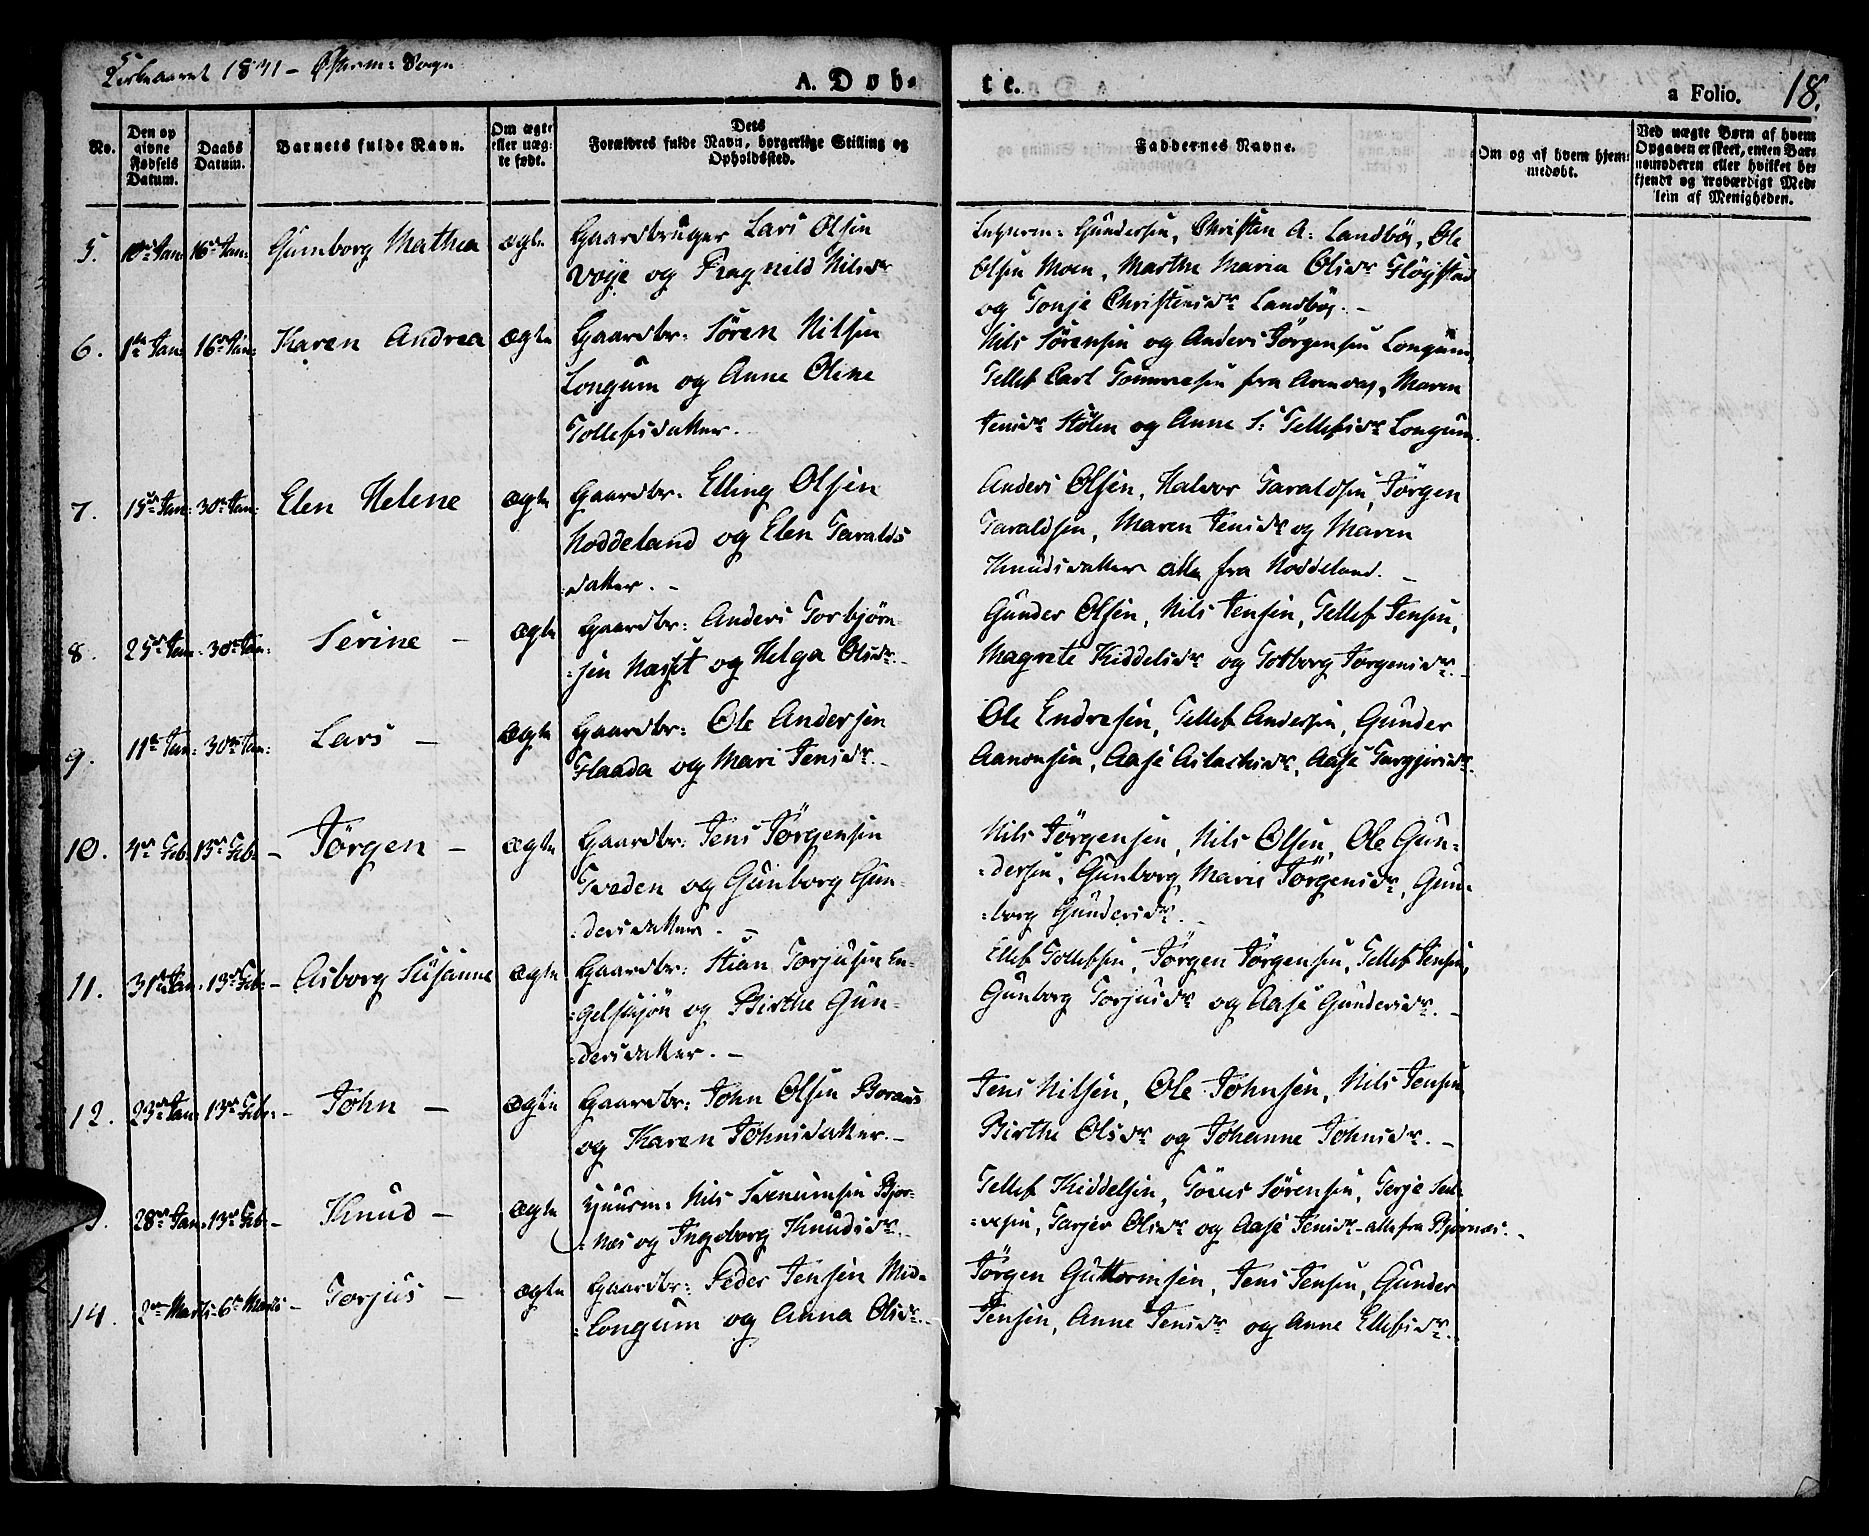 Kirkeaaret 1831 - Østrem: Sogn
A. Døb-
te.
a Folio. 18.
No.
Den op
givne
Fødsels
Datum.
Daabs
Datum.
Barnets fulde Navn.
Om ægte
eller uæg-
te født.
Dets
Forældres fulde Navn, borgerlige Stilling og
Opholdssted.
Faddernes Navne.
Om og af hvem hjem-
medøbt.
Ved uægte Børn af hvem
Opgaven er skeet, enten Bar-
nemoderen eller hvilket be-
kjendt og troværdigt Med-
lem af Menigheden.
5. 10de Jan: 16de Jan: Gunborg Mathea ægte
Gaardbruger Lars Olsen
Voje og Ragnild Nilsdr
Gundersen, Christen A: Landbøe, Ole
Olsen Moen, Marthe Maria Olsdr Fløystad
og Tonje Christensdr Landbøe. -
6. 1ste Jan: 16de Jan: Karen Andrea ægte
Gaardbr: Sören Nilsen
Longum og Anne Oline
Tollefsdatter.
Nils Sörensen og Anders Jörgensen Longum
Tellef Carl fra Arendal, Maren
Jensdr Stölen og Anne S: Tellefsdr Longum.
7. 15de Jan: 30de Jan: Elen Helene ægte
Gaardbr: Elling Olsen
Noddeland og Elen Taralds
datter. -
Anders Olsen, Halvor Taraldsen, Jörgen
Taraldsen, Maren Jensdr og Maren
Knudsdatter alle fra Noddeland. -
8. 25de Jan: 30de Jan: Serine -
ægte
Gaardbr: Anders Torbjörn-
sen Næsset og Helga Olsdr. -
Gunder Olsen, Nils Jensen, Tellef Jensen,
Magrete Kiddelsdr og Gotborg Jorgensdr. -
9. 11te Jan: 30de Jan: Lars -
ægte
Gaardbr: Ole Andersen
Flaada og Mari Jensdr. -
Ole Endresen, Tellef Andersen, Gunder
Aanonsen, Aase Aslachsdr, Aase Targjersdr. -
10. 4de Feb: 13de Feb: - Jörgen -
ægte
Gaardbr: Jens Jörgensen
Tveden og Gunborg Gun-
dersdatter. -
Nils Jörgensen, Nils Olsen, Ole Gun-
dersen, Gunborg Marie Jörgensdr, Gun-
borg Gundersdr. -
11. 31te Jan: 13de Feb: - Asborg Susanne ægte
Gaardbr: Stian Torjusen En-
gelskjön og Birthe Gun-
dersdatter. -
Ellef Tollefsen, Jörgen Jörgensen, Tellef Jensen,
Gunborg Torjusdr og Aase Gundersdr. -
12. 23de Jan: 13de Feb: - John -
ægte
Gaardbr: John Olsen Boraas
og Karen Johnsdatter. -
Jens Nilsen, Ole Johnsen, Nils Jensen
Birthe Olsdr og Johanne Johnsdr. -
3. 28de Jan: 13de Feb: - Knud -
ægte
Huusm: Nils Svenumsen Bjor-
næs og Ingeborg Knudsdr. -
Tellef Kiddelsen, Sörensen, Terje
Tarjer Olsdr og Aase Jensdr - alle fra Bjørnæs. -
14. 2de Marts: 6te Marts - Torjus -
ægte
Gaardbr: Peder Jensen Mid-
Longum og Anna Olsdr. -
Jörgen Guttormsen, Jens Jensen, Gunder
Jensen, Anne Jensdr og Anne Ellefsdr. -